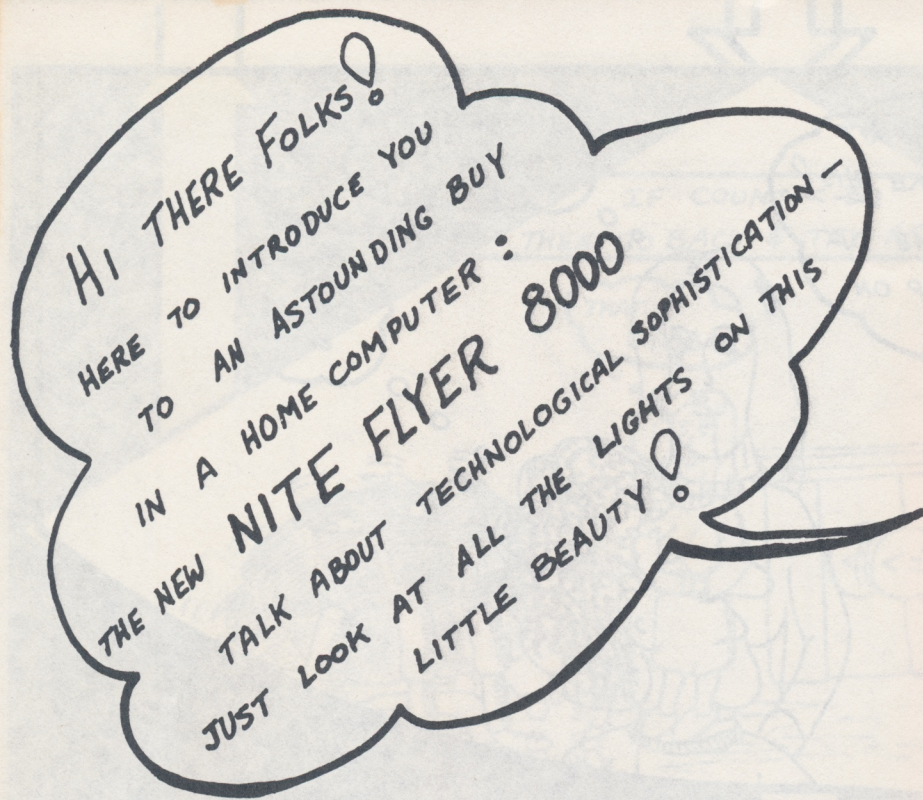 HI THERE FOLKS!
HERE TO INTRODUCE YOU
TO AN ASTOUNDING BUY
IN A HOME COMPUTER:
THE NEW NITE FLYER 8000
TALK ABOUT TECHNOLOGICAL SOPHISTICATION-
JUST LOOK AT ALL THE LIGHTS ON THIS
LITTLE BEAUTY!